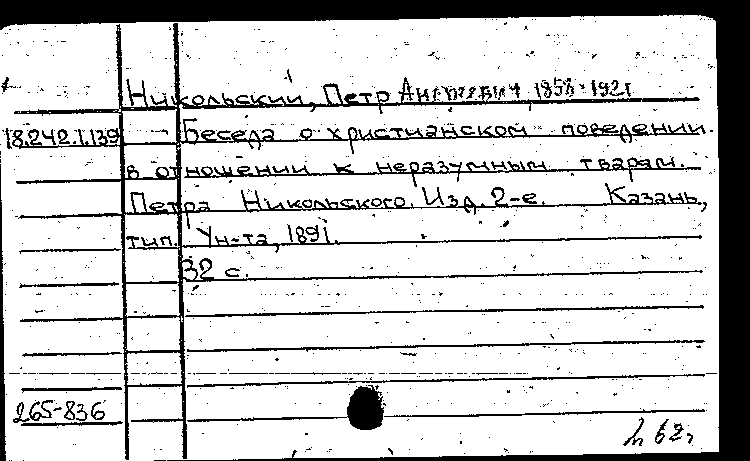 Никольский, Петр Андреевич 1858-1921
18.242.1.139 - Беседа о христианском поведении
в отношении к неразумным тварям.
Петра Никольского. Изд. 2-е. Казань,
тип. Ун-та, 1891.
32 с.
265-836
62г